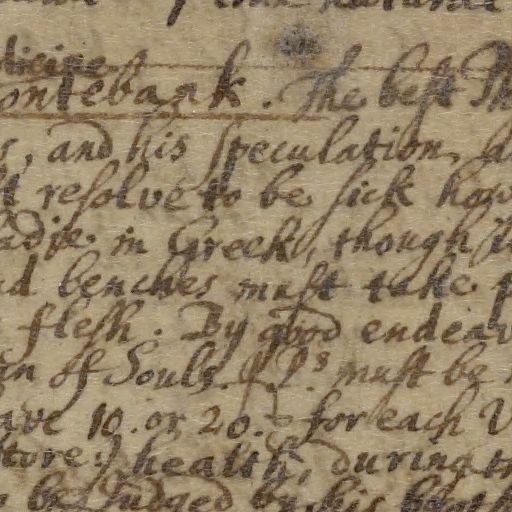 dicine
ontebank. The best Ph
s, and his speculation, a
t resolve to be sick how
adie in Greek, though
d benches must take p
flesh. By good endeav
n of Souls must be
ave 10. or 20. for each V
store health, during
be Judged by his